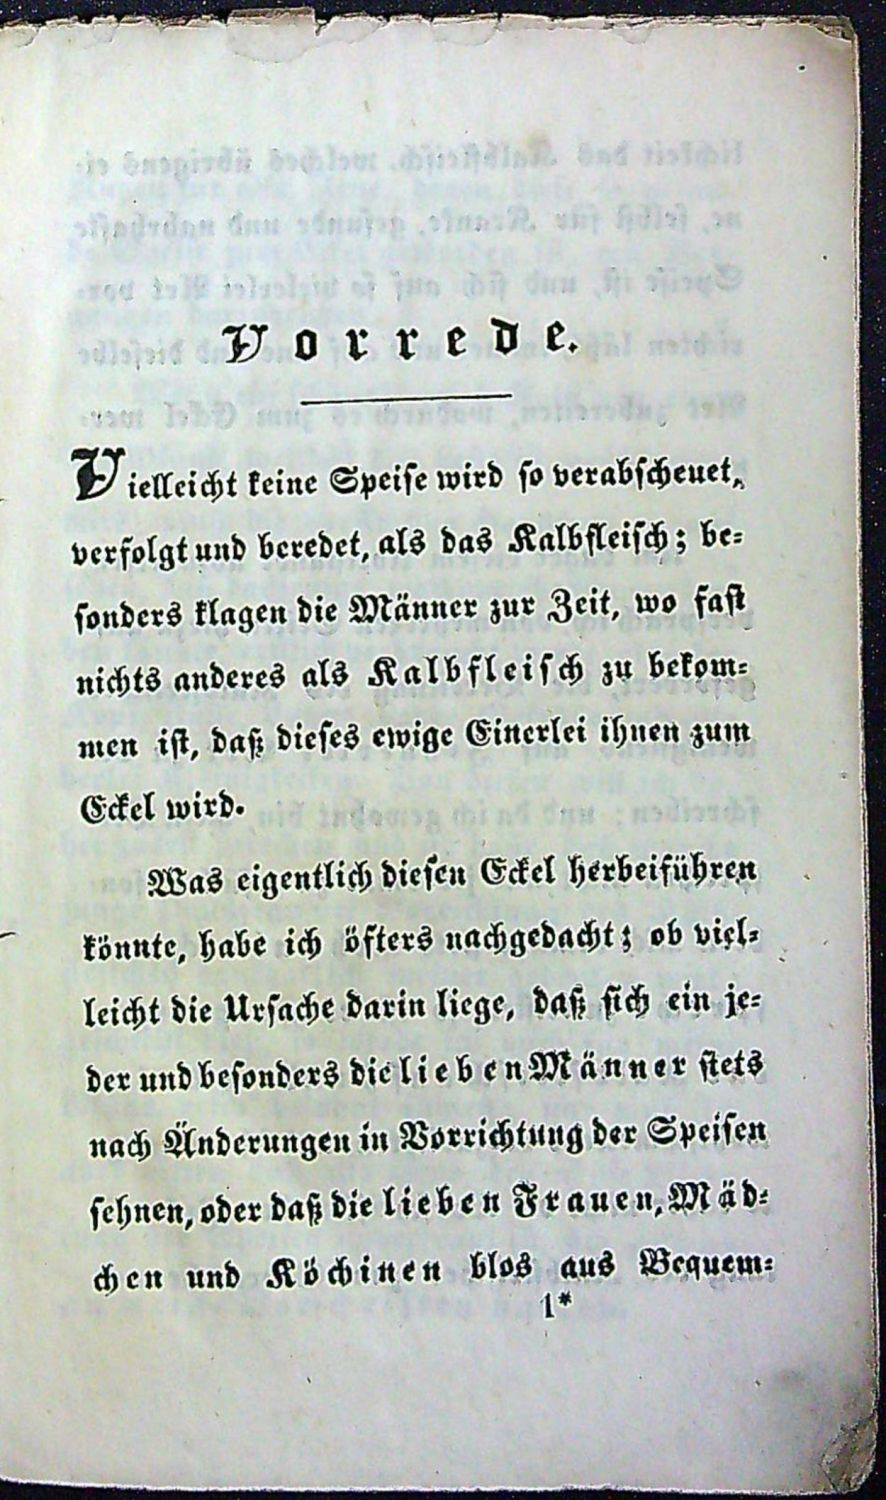 Vorrede.
Vielleicht keine Speise wird so verabscheuet,
verfolgt und beredet, als das Kalbfleisch; be-
sonders klagen die Männer zur Zeit, wo fast
nichts anderes als Kalbfleisch zu bekom-
men ist, daß dieses ewige Einerlei ihnen zum
Eckel wird.
Was eigentlich diesen Eckel herbeiführen
könnte, habe ich öfters nachgedacht; ob viel-
leicht die Ursache darin liege, daß sich ein je-
der und besonders die lieben Männer stets
nach Änderungen in Vorrichtung der Speisen
sehnen, oder daß die lieben Frauen, Mäd-
chen und Köchinen blos aus Bequem-
1*